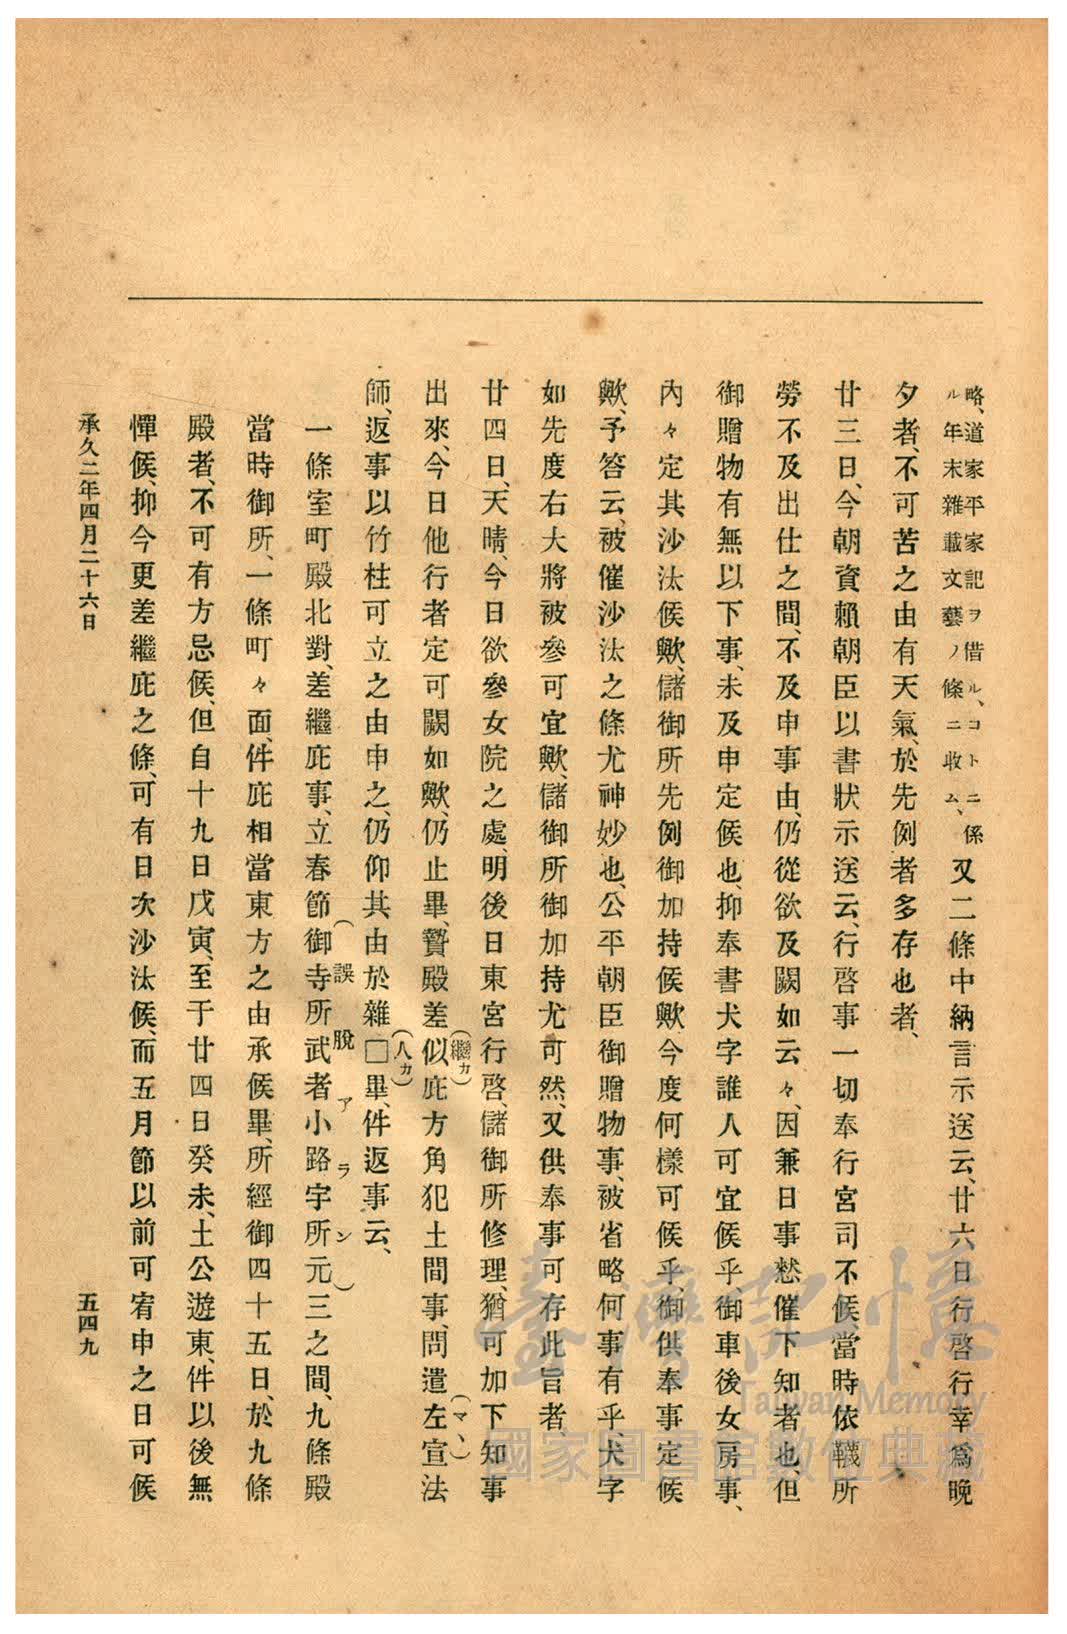 略、道家平家記ヲ借ル、コトニ係
ル年末雜載文藝ノ條ニ收ム、
又二條中納言示送云、廿六日行啓行幸爲晩
夕者、不可苦之由有天氣、於先例者多存也者、
廿三日、今朝資賴朝臣以書狀示送云、行啓事一切奉行宮司不候、當時依韈所
勞不及出仕之間、不及申事由、仍從欲及闕如云々、因兼日事愁催下知者也、但
御贈物有無以下事、未及申定候也、抑奉書犬字誰人可宜候乎、御車後女房事、
內々定其沙汰候歟、儲御所先例御加持候歟、今度何樣可候乎、御供奉事定候
歟、予答云、被催沙汰之條尤神妙也、公平朝臣御贈物事、被省略何事有乎、犬字
如先度右大將被參可宜歟、儲御所御加持尤可然、又供奉事可存此旨者、
廿四日、天晴、今日欲參女院之處、明後日東宮行啓、儲御所修理、猶可加下知事
出來、今日他行者定可闕如歟、仍止畢、贄殿差似(繼カ)庇方角犯土間事、問遣左宣(マヽ)法
師、返事以竹柱可立之由申之、仍仰其由於雜□(人カ)畢、件返事云、
一條室町殿北對、差繼庇事、立春節御寺所武者小路宇所元(誤脫アラン)三之間、九條殿
當時御所、一條町々面、件庇相當東方之由承候畢、所經御四十五日、於九條
殿者、不可有方忌候、但自十九日戊寅、至于廿四日癸未、土公遊東、件以後無
憚候、抑今更差繼庇之條、可有日次沙汰候、而五月節以前可宥申之日可候
承久二年四月二十六日
五四九
臺灣記憶
Taiwan Memory
國家圖書館數位典藏